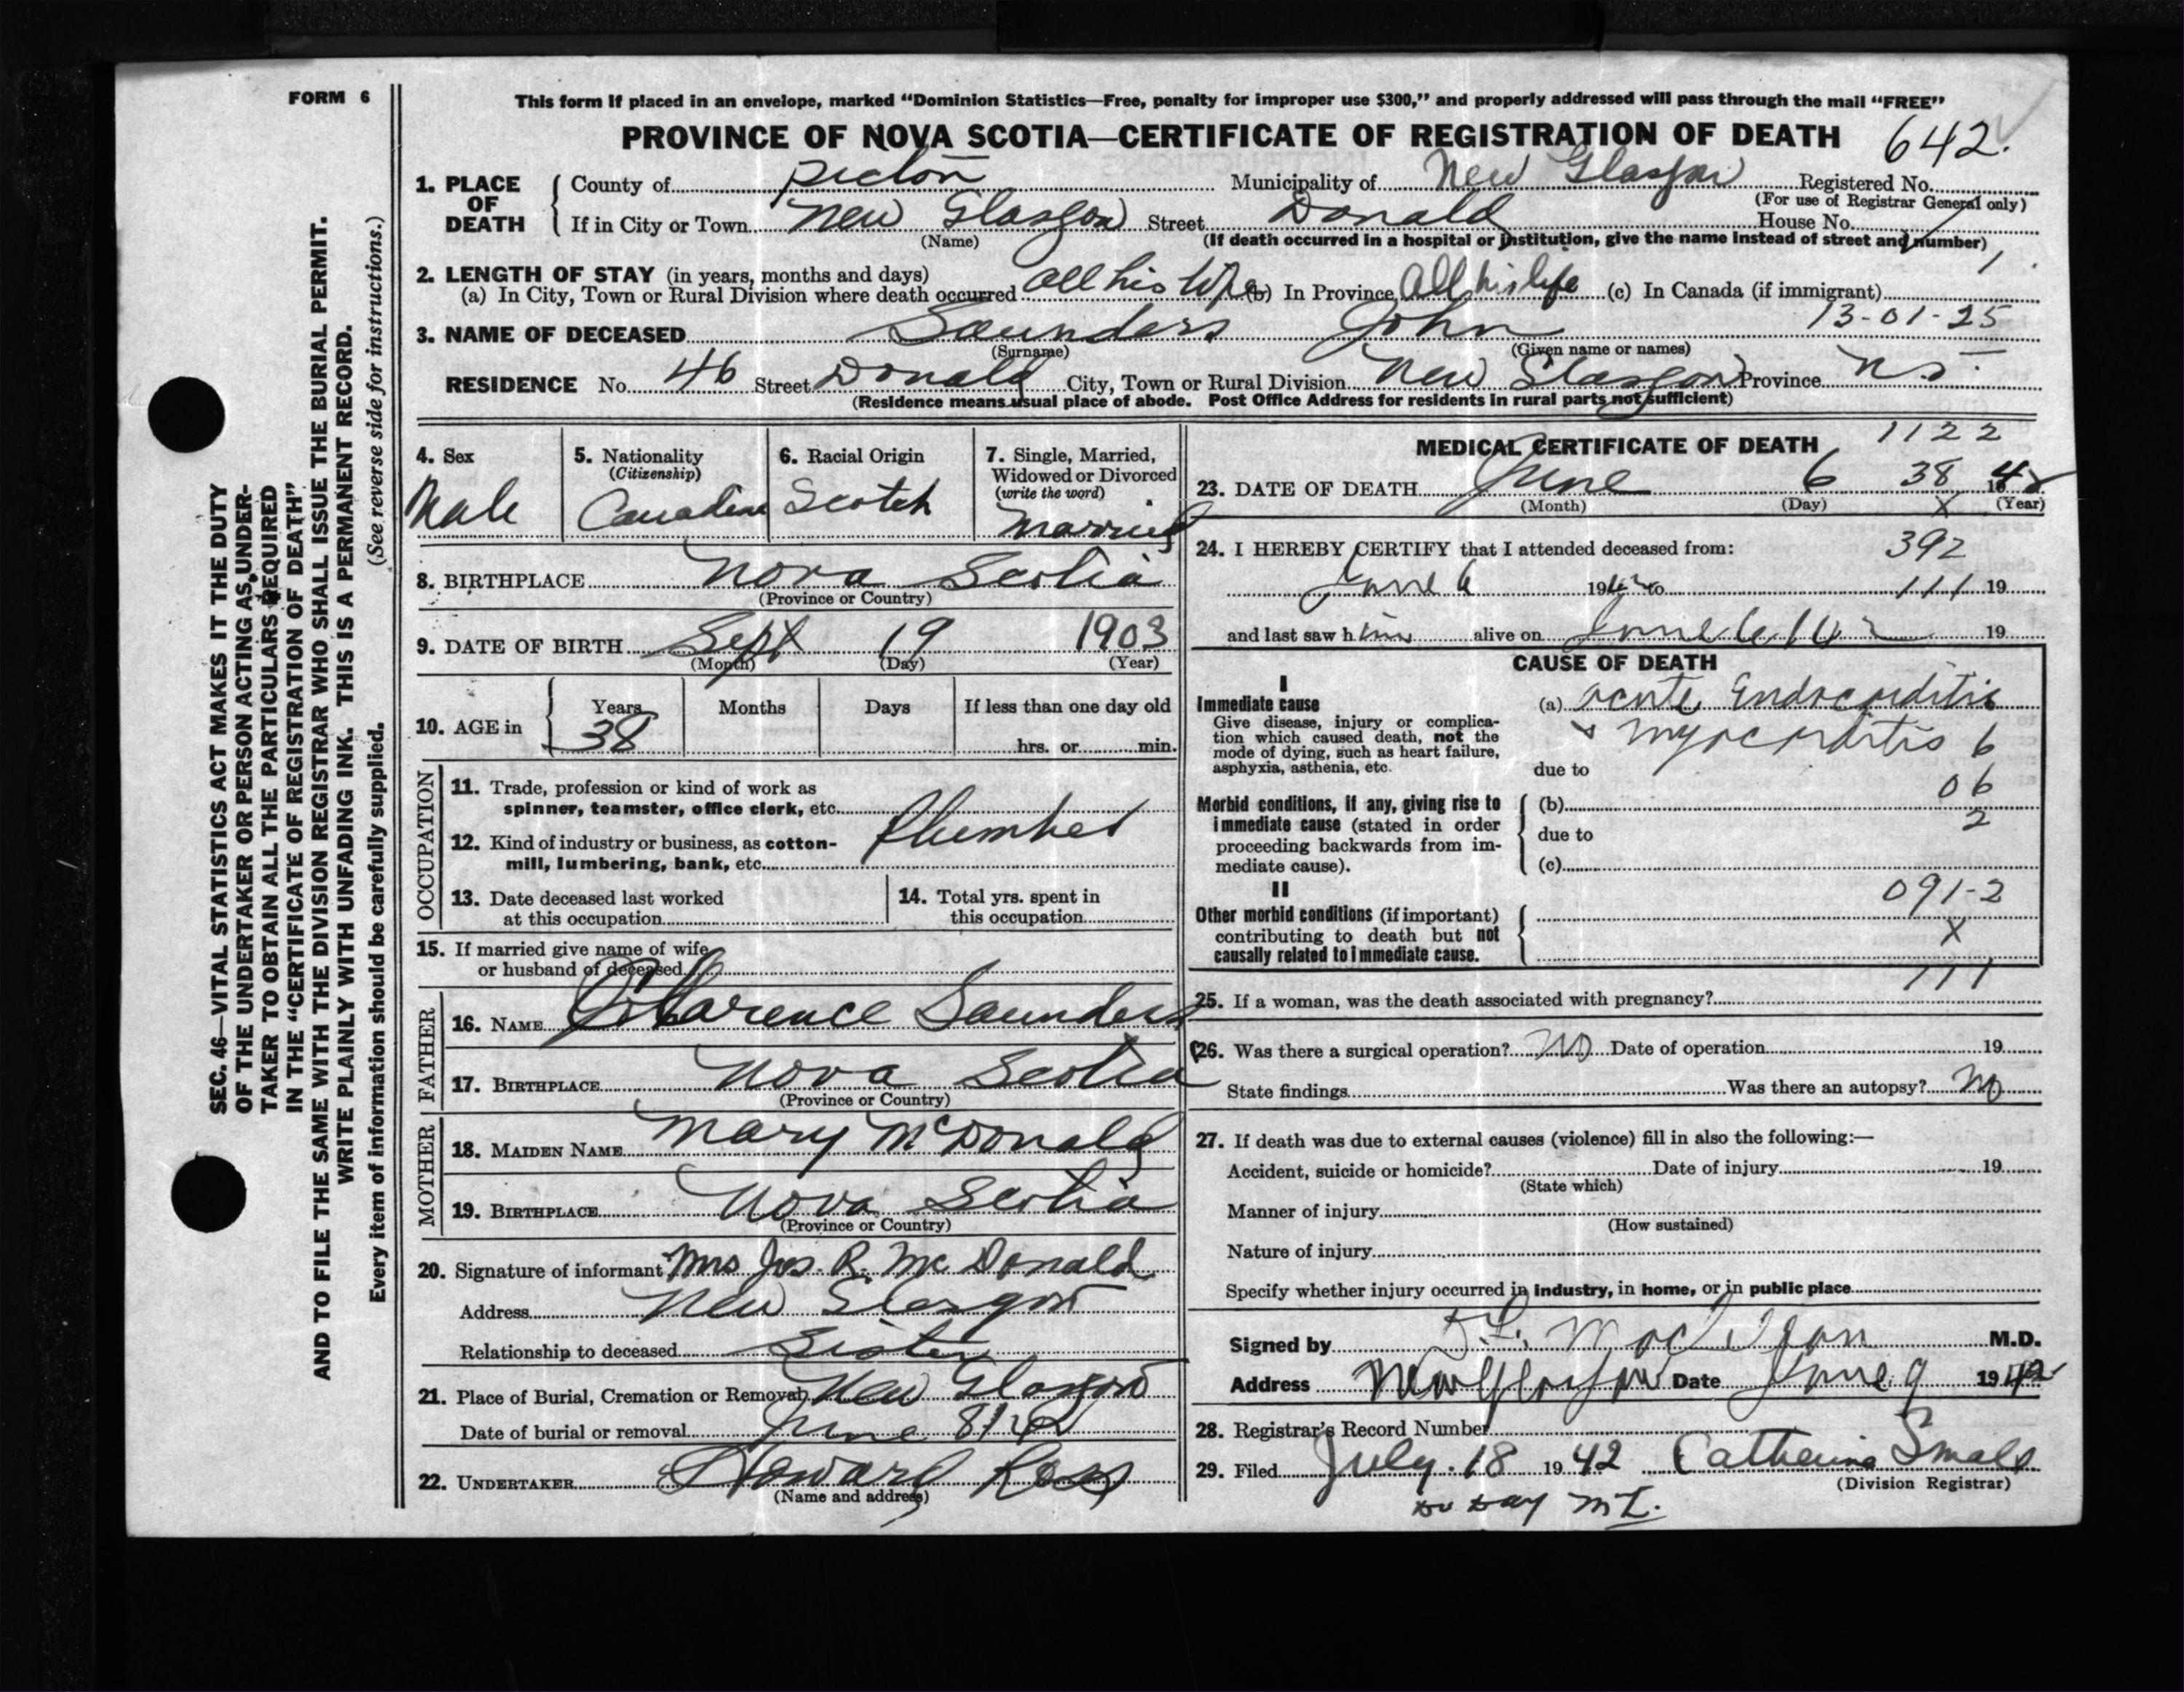 FORM 6
This form if placed in an envelope, marked “Dominion Statistics—Free, penalty for improper use $300,” and properly addressed will pass through the mail “FREE”
PROVINCE OF NOVA SCOTIA—CERTIFICATE OF REGISTRATION OF DEATH 642.
1. PLACE OF DEATH
County of Pictou Municipality of New Glasgow Registered No.
(For use of Registrar General only)
If in City or Town New Glasgow Street Donald House No.
(Name) (If death occurred in a hospital or institution, give the name instead of street and number)
2. LENGTH OF STAY (in years, months and days)
(a) In City, Town or Rural Division where death occurred all his life (b) In Province All his life (c) In Canada (if immigrant)
13-01-25
3. NAME OF DECEASED Saunders John
(Surname) (Given name or names)
RESIDENCE No. 46 Street Donald City, Town or Rural Division New Glasgow Province N.S.
(Residence means usual place of abode. Post Office Address for residents in rural parts not sufficient)
4. Sex Male
5. Nationality (Citizenship) Canadian
6. Racial Origin Scotch
7. Single, Married, Widowed or Divorced (write the word) Married
8. BIRTHPLACE Nova Scotia
(Province or Country)
9. DATE OF BIRTH Sept 19 1903
(Month) (Day) (Year)
10. AGE in Years 38 Months Days If less than one day old
hrs. or min.
OCCUPATION
11. Trade, profession or kind of work as
spinner, teamster, office clerk, etc.
Plumber
12. Kind of industry or business, as cotton-
mill, lumbering, bank, etc.
13. Date deceased last worked
at this occupation
14. Total yrs. spent in
this occupation
15. If married give name of wife
or husband of deceased
FATHER
16. NAME Clarence Saunders
17. BIRTHPLACE Nova Scotia
(Province or Country)
MOTHER
18. MAIDEN NAME Mary McDonald
19. BIRTHPLACE Nova Scotia
(Province or Country)
20. Signature of informant Mrs Jos. R. McDonald
Address New Glasgow
Relationship to deceased Sister
21. Place of Burial, Cremation or Removal New Glasgow
Date of burial or removal June 8/42
22. UNDERTAKER Howard Ross
(Name and address)
MEDICAL CERTIFICATE OF DEATH 1122
23. DATE OF DEATH June 6 38 1942
(Month) (Day) X (Year)
24. I HEREBY CERTIFY that I attended deceased from: 392
June 6 1942 to 111 19
and last saw him alive on June 6 19
CAUSE OF DEATH
I
Immediate cause
Give disease, injury or complica-
tion which caused death, not the
mode of dying, such as heart failure,
asphyxia, asthenia, etc.
(a) acute Endocarditis
& myocarditis 6
due to
06
Morbid conditions, if any, giving rise to
immediate cause (stated in order
proceeding backwards from im-
mediate cause).
(b)
2
due to
(c)
II
091-2
Other morbid conditions (if important)
contributing to death but not
causally related to immediate cause.
X
111
25. If a woman, was the death associated with pregnancy?
26. Was there a surgical operation? No Date of operation 19
State findings Was there an autopsy? No
27. If death was due to external causes (violence) fill in also the following:—
Accident, suicide or homicide? Date of injury 19
(State which)
Manner of injury
(How sustained)
Nature of injury
Specify whether injury occurred in industry, in home, or in public place
Signed by M.D.
Address New Glasgow Date June 9 1942
28. Registrar's Record Number
29. Filed July 18 1942 Catherine Small
(Division Registrar)
SEC. 46—VITAL STATISTICS ACT MAKES IT THE DUTY
OF THE UNDERTAKER OR PERSON ACTING AS UNDER-
TAKER TO OBTAIN ALL THE PARTICULARS REQUIRED
IN THE “CERTIFICATE OF REGISTRATION OF DEATH”
AND TO FILE THE SAME WITH THE DIVISION REGISTRAR WHO SHALL ISSUE THE BURIAL PERMIT.
WRITE PLAINLY WITH UNFADING INK. THIS IS A PERMANENT RECORD.
Every item of information should be carefully supplied. (See reverse side for instructions.)